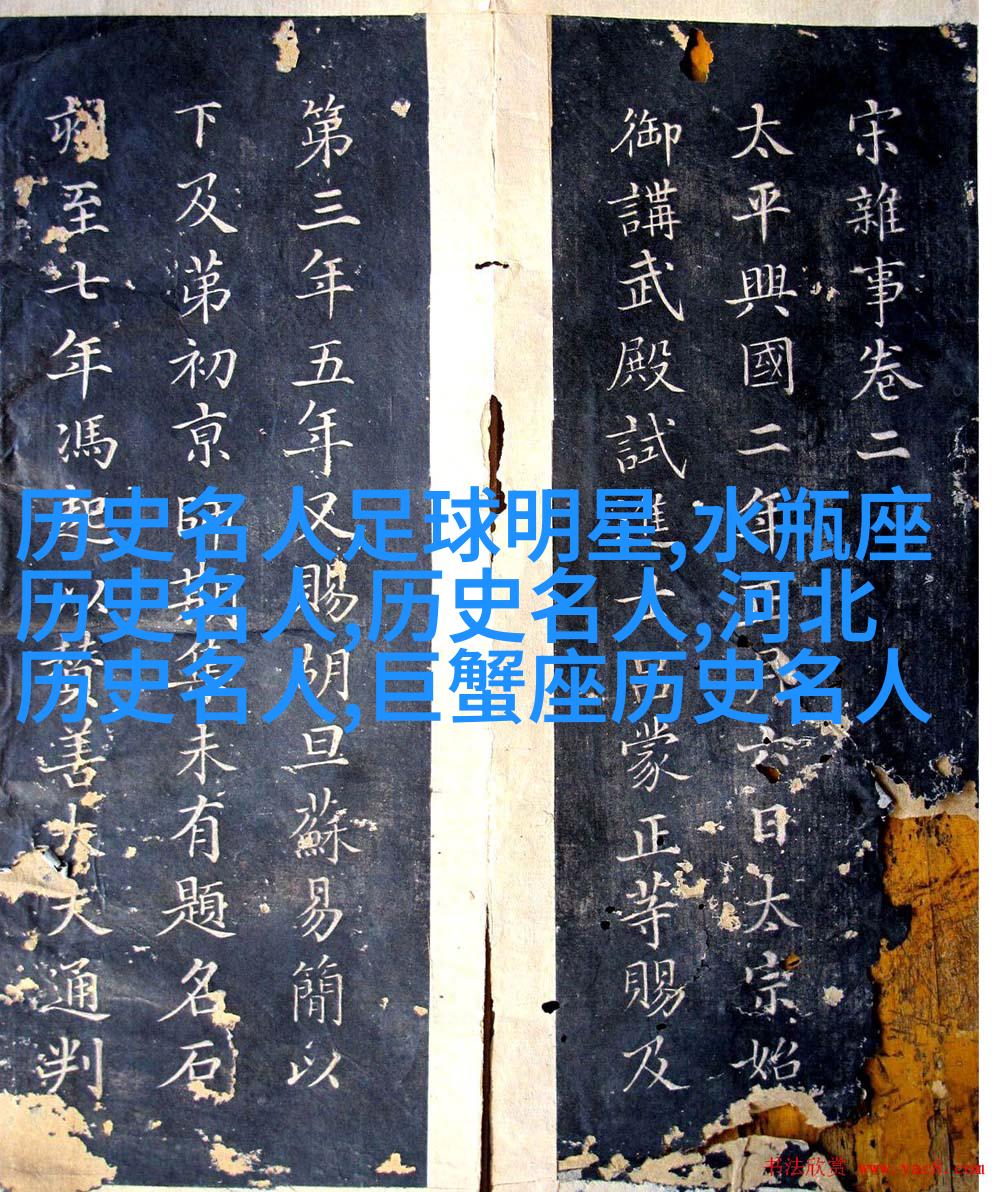 宋雜事卷二
太平興國二年 六日太宗始
御講武殿試進士呂蒙正等賜及
第三年五年又賜胡旦蘇易簡以
下及第初京師期集未有題名石
刻至七年馮起以替善大夫通判
历史名人足球明星,水瓶座
历史名人,历史名人,河北
历史名人,巨蟹座历史名人
书法欣赏 www.yac8.com